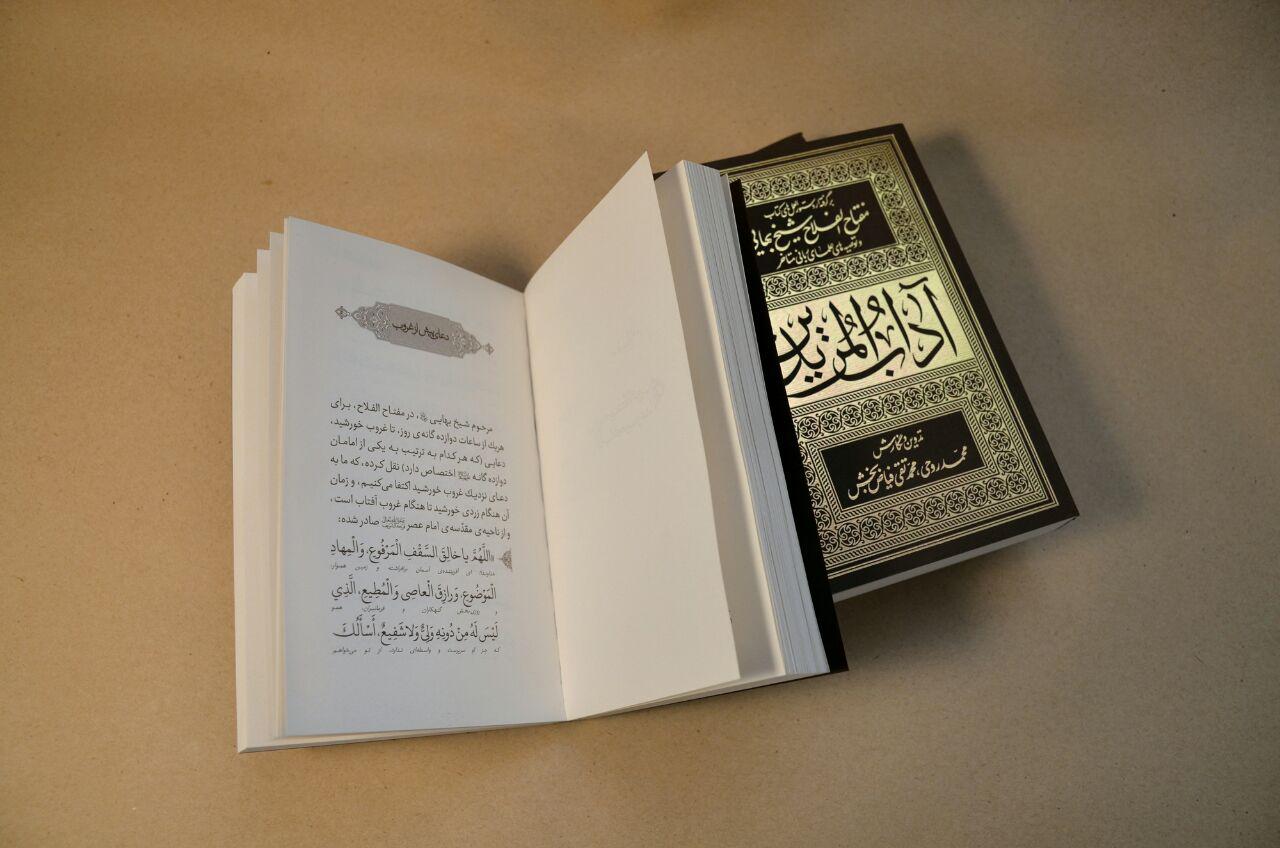 دعای پیش از غروب
مرحوم شیخ بهایی، در مفتاح الفلاح، برای
هریك از ساعات دوازده گانه‌ی روز، تا غروب خورشید،
دعایی (که هر کدام به ترتیب به یکی از امامان
دوازده گانه اختصاص دارد) نقل کرده، که ما به
دعای نزدیك غروب خورشید اکتفا می‌کنیم، و زمان
آن هنگام زردی خورشید تا هنگام غروب آفتاب است،
و از ناحیه‌ی مقدّسه‌ی امام عصر صادر شده:
«اللَّهُمَّ يا خالِقَ السَّقْفِ الْمَرْفُوعِ، وَالْمِهادِ
خداوندا؛ ای آفریننده‌ی آسمان برافراشته و زمین هموار؛
الْمَوْضُوعِ، وَرازِقَ الْعاصِي وَالْمُطيعِ، الَّذِي
و روزی‌بخش گنهکاران و فرمانبران، همو
لَيْسَ لَهُ مِنْ دُونِهِ وَلِيٌّ وَلا شَفِيعٌ، أَسْأَلُكَ
که جز او سرپرست و واسطه‌ای ندارد، از تو می‌خواهم
برگرفته از دستورالعمل‌های کتاب
مفتاح الفلاح شیخ بهائی
و توصیه های علمای ربانی متأخر
آدابُ المُریدین
تدوین و نگارش
محمد روحی، محمد تقی فیاض بخش